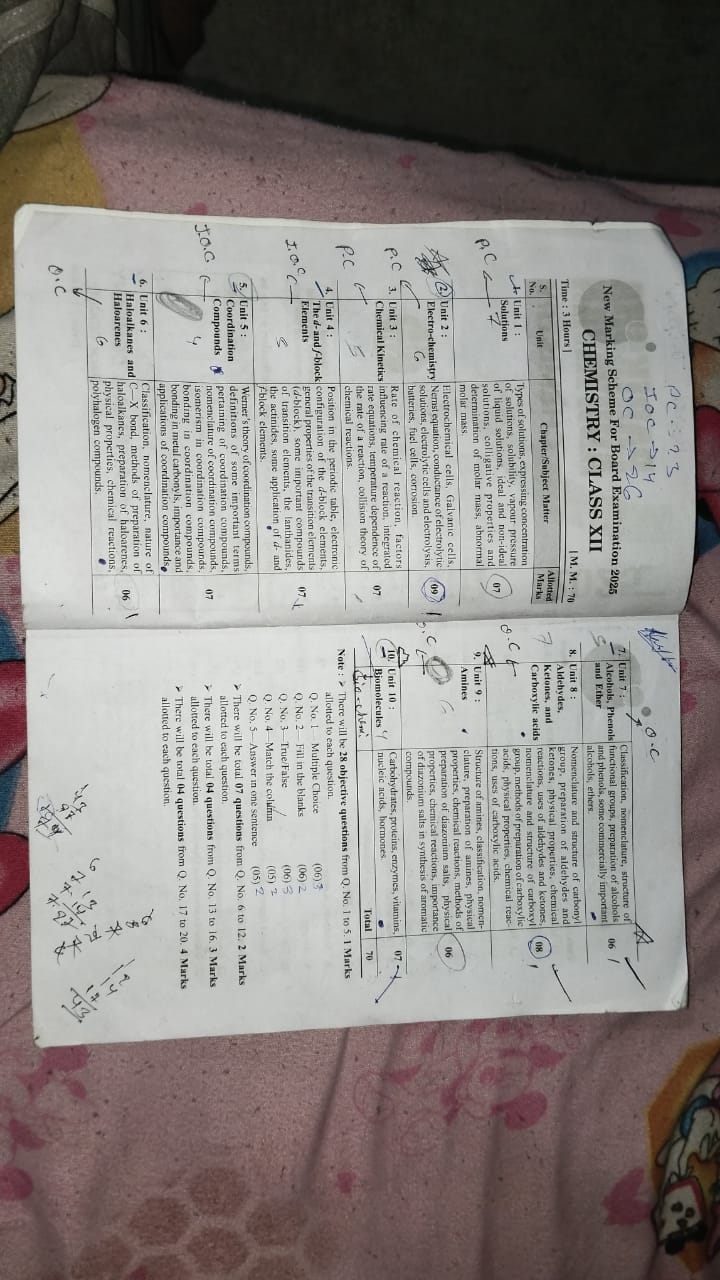 PC :- 23
IOC → 14
OC → 26
New Marking Scheme For Board Examination 2025
CHEMISTRY : CLASS XII
Time : 3 Hours ]
[ M. M. : 70
S. No.
Unit
Chapter/Subject Matter
Allotted Marks
1. Unit 1 :
Solutions
Types of solutions, expressing concentration
of solutions, solubility, vapour pressure
of liquid solutions, ideal and non-ideal
solutions, colligative properties and
determination of molar mass, abnormal
molar mass.
07
P.C
7
2. Unit 2 :
Electro-chemistry
Electrochemical cells, Galvanic cells,
Nernst equation, conductance of electrolytic
solutions, electrolytic cells and electrolysis,
batteries, fuel cells, corrosion.
09
P.C
6
3. Unit 3 :
Chemical Kinetics
Rate of chemical reaction, factors
influencing rate of a reaction, integrated
rate equations, temperature dependence of
the rate of a reaction, collision theory of
chemical reactions.
07
P.C
5
4. Unit 4 :
The d- and f-block
Elements
Position in the periodic table, electronic
configuration of the d-block elements,
general properties of the transition elements
(d-block), some important compounds
of transition elements, the lanthanides,
the actinides, some application of d- and
f-block elements.
07
I.O.C
5. Unit 5 :
Coordination
Compounds
Werner's theory of coordination compounds,
definitions of some important terms
pertaining of coordination compounds,
nomenclature of coordination compounds,
isomerism in coordination compounds,
bonding in coordination compounds,
bonding in metal carbonyls, importance and
applications of coordination compounds.
07
I.O.C
4
6. Unit 6 :
Haloalkanes and
Haloarenes
Classification, nomenclature, nature of
C—X bond, methods of preparation of
haloalkanes, preparation of haloarenes,
physical properties, chemical reactions,
polyhalogen compounds.
06
O.C
6
7. Unit 7 :
Alcohols, Phenols
and Ether
Classification, nomenclature, structure of
functional groups, preparation of alcohols
and phenols, some commercially important
alcohols, ethers.
06
O.C
5
8. Unit 8 :
Aldehydes,
Ketones, and
Carboxylic acids
Nomenclature and structure of carbonyl
group, preparation of aldehydes and
ketones, physical properties, chemical
reactions, uses of aldehydes and ketones,
nomenclature and structure of carboxyl
group, methods of preparation of carboxylic
acids, physical properties, chemical reac-
tions, uses of carboxylic acids.
08
7
O.C
9. Unit 9 :
Amines
Structure of amines, classification, nomen-
clature, preparation of amines, physical
properties, chemical reactions, methods of
preparation of diazonium salts, physical
properties, chemical reactions, importance
of diazonium salts in synthesis of aromatic
compounds.
06
O.C
6
10. Unit 10 :
Biomolecules
Carbohydrates, proteins, enzymes, vitamins,
nucleic acids, hormones.
07
4
Total 70
Note : ➢ There will be 28 objective questions from Q. No. 1 to 5. 1 Marks
allotted to each question.
Q. No. 1 – Multiple Choice (06) 3
Q. No. 2 – Fill in the blanks (06) 2
Q. No. 3 – True/False (06) 3
Q. No. 4 – Match the column (05) 2
Q. No. 5 – Answer in one sentence (05) 2
➢ There will be total 07 questions from Q. No. 6 to 12. 2 Marks
allotted to each question.
➢ There will be total 04 questions from Q. No. 13 to 16. 3 Marks
allotted to each question.
➢ There will be total 04 questions from Q. No. 17 to 20. 4 Marks
allotted to each question.